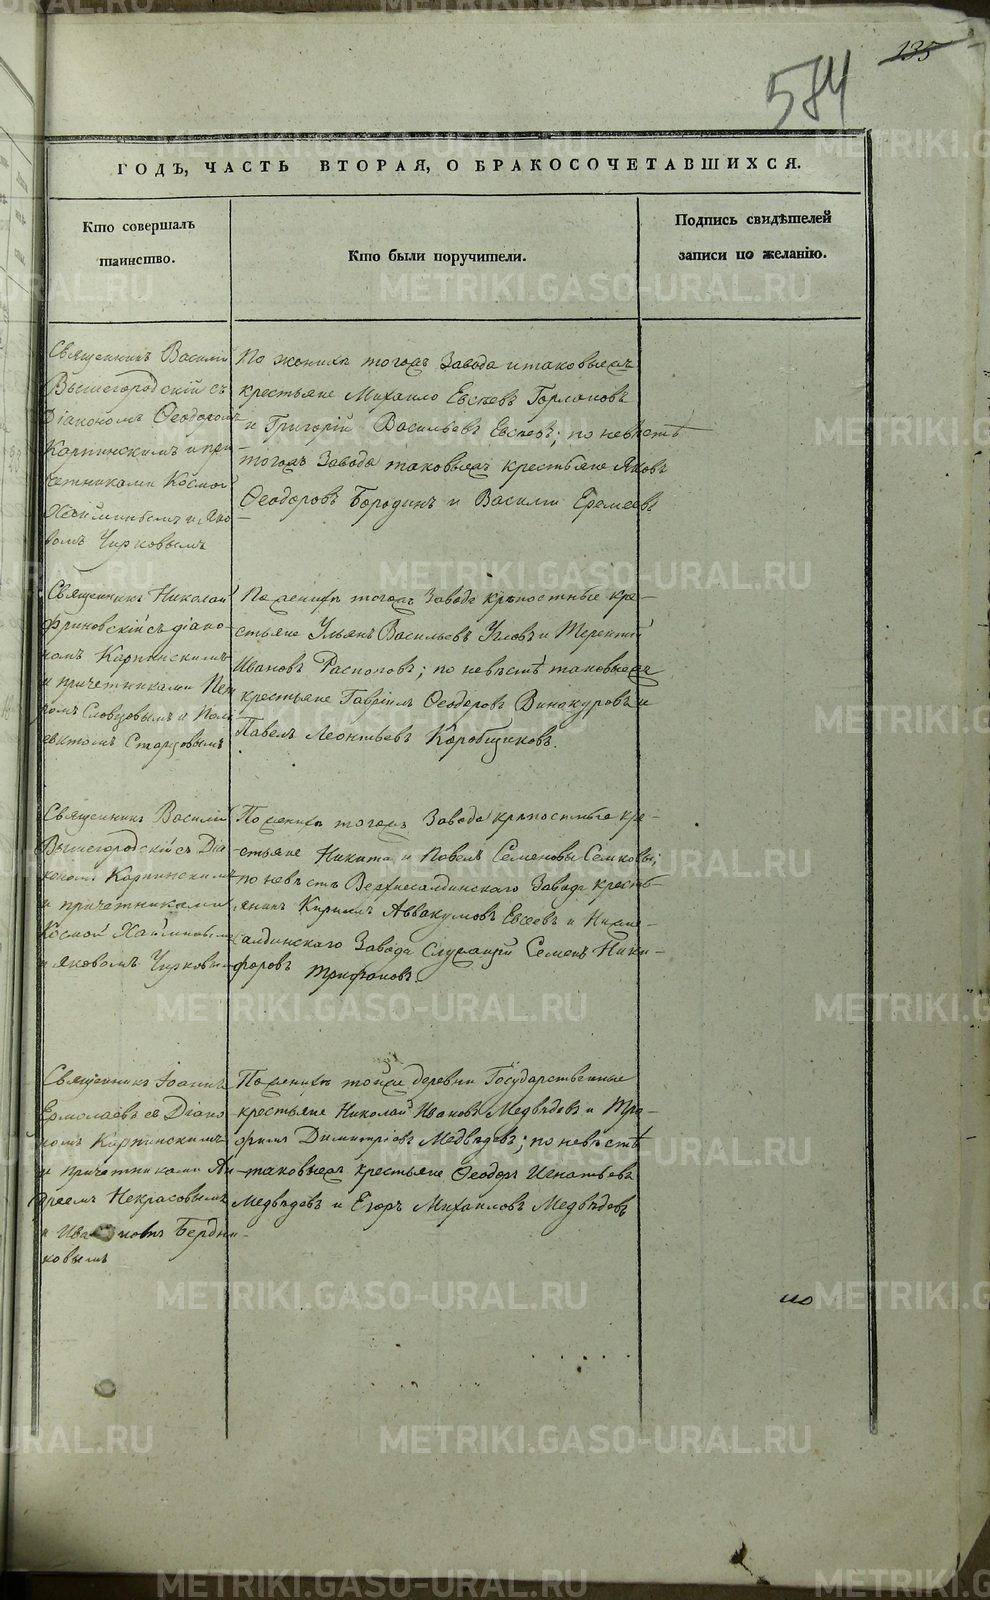 135
584
ГОДЪ, ЧАСТЬ ВТОРАЯ, О БРАКОСОЧЕТАВШИХСЯ.
Кто совершалъ
таинство.
Кто были поручители.
Подпись свидѣтелей
записи по желанію.
Священникъ Василій
Вышегородскій съ
Діакономъ Ѳеодоромъ
Карпинскимъ и при
четниками Космой
и Яко
вомъ Чирковымъ
По женихѣ тогожъ Завода и таковыежъ
крестьяне Михайло Евсѣевъ Горланов
и Григорій Васильевъ Евсѣевъ; по невѣстѣ
тогожъ Завода таковыежъ крестьяне Яковъ
Ѳеодоровъ Бородинъ и Василій Еремѣевъ
Священникъ Николай
съ діако-
номъ Карпинскимъ
и причетниками Пет
ромъ Словцовымъ и Поли
евктомъ Старцовымъ
По женихѣ тогожъ Завода крѣпостные кре-
стьяне Ульянъ Васильевъ Угловъ и Терентій
Ивановъ Распоповъ; по невѣстѣ таковыежъ
крестьяне Гавріилъ Ѳеодоровъ Винакуровъ и
Павелъ Леонтьевъ Коробщиковъ.
Священникъ Василій
Вышегородскій съ Діа
кономъ Карпинскимъ
и причетниками
Космой
и Яковомъ Чирковым
По женихѣ тогожъ Завода крѣпостные кре-
стьяне Никита и Павелъ Семеновы Семковы;
по невѣстѣ Верхнесалдинскаго Завода кресть-
янинъ Кирилъ Аввакумовъ Евсѣевъ и Нижне-
салдинскаго Завода Служащій Семенъ Ники-
форовъ Трифановъ.
Священникъ Іоаннъ
Ермолаевъ съ Діако
номъ Карпинскимъ
и причетниками Ан
дреемъ Некрасовымъ
и Бердни-
ковымъ
По женихѣ тойже деревни Государственные
крестьяне Николай Ивановъ Медвѣдевъ и Тро-
фимъ Димитріевъ Медвѣдевъ; по невѣстѣ
таковыежъ крестьяне Ѳеодоръ Игнатьевъ
Медвѣдевъ и Егоръ Михаиловъ Медвѣдевъ
по
METRIKI.GASO-URAL.RU